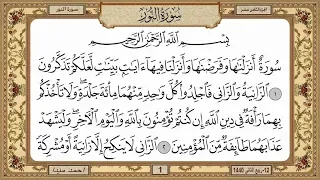 الجزء الثامن عشر
سورة النور
سُورَةُ النُّورِ
بِسْمِ اللَّهِ الرَّحْمَٰنِ الرَّحِيمِ
سُورَةٌ أَنزَلْنَٰهَا وَفَرَضْنَٰهَا وَأَنزَلْنَا فِيهَآ ءَايَٰتٍۭ بَيِّنَٰتٍ لَّعَلَّكُمْ تَذَكَّرُونَ
١ ٱلزَّانِيَةُ وَٱلزَّانِى فَٱجْلِدُوا۟ كُلَّ وَٰحِدٍ مِّنْهُمَا مِا۟ئَةَ جَلْدَةٍ ۖ وَلَا تَأْخُذْكُم
بِهِمَا رَأْفَةٌ فِى دِينِ ٱللَّهِ إِن كُنتُمْ تُؤْمِنُونَ بِٱللَّهِ وَٱلْيَوْمِ ٱلْءَاخِرِ ۖ وَلْيَشْهَدْ
عَذَابَهُمَا طَآئِفَةٌ مِّنَ ٱلْمُؤْمِنِينَ ٢ ٱلزَّانِى لَا يَنكِحُ إِلَّا زَانِيَةً أَوْ مُشْرِكَةً
12- ربيع الثاني 1440
1